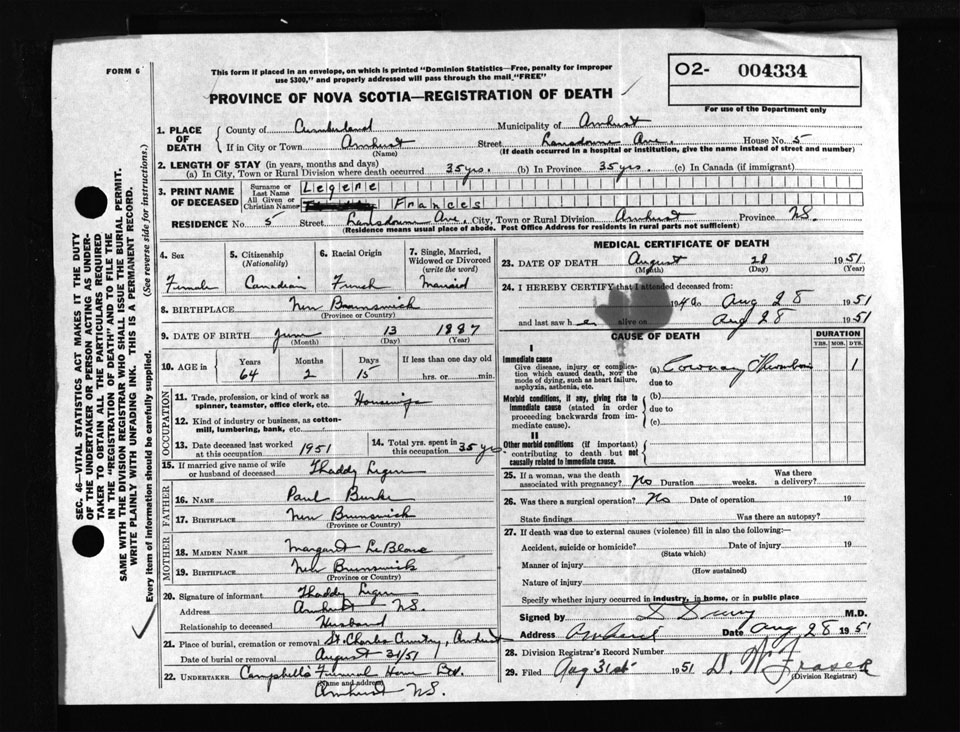 FORM 6
This form if placed in an envelope, on which is printed "Dominion Statistics—Free, penalty for improper
use $300," and properly addressed will pass through the mail "FREE"
O2- 004334
For use of the Department only
PROVINCE OF NOVA SCOTIA—REGISTRATION OF DEATH
1. PLACE OF DEATH
County of Cumberland Municipality of Amherst
If in City or Town Amherst Street Lansdowne Ave. House No. 5
(Name) (If death occurred in a hospital or institution, give the name instead of street and number)
2. LENGTH OF STAY (in years, months and days)
(a) In City, Town or Rural Division where death occurred 35 yrs. (b) In Province 35 yrs. (c) In Canada (if immigrant)
3. PRINT NAME OF DECEASED
Surname or Last Name Legere
All Given or Christian Names Frances
RESIDENCE No. 5 Street Lansdowne Ave. City, Town or Rural Division Amherst Province N.S.
(Residence means usual place of abode. Post Office Address for residents in rural parts not sufficient)
4. Sex
Female
5. Citizenship (Nationality)
Canadian
6. Racial Origin
French
7. Single, Married, Widowed or Divorced (write the word)
Married
8. BIRTHPLACE New Brunswick
(Province or Country)
9. DATE OF BIRTH June 13 1887
(Month) (Day) (Year)
10. AGE in Years Months Days If less than one day old
64 2 15 hrs. or min.
OCCUPATION
11. Trade, profession, or kind of work as
spinner, teamster, office clerk, etc. Housewife
12. Kind of industry or business, as cotton-
mill, lumbering, bank, etc.
13. Date deceased last worked
at this occupation 1951
14. Total yrs. spent in
this occupation 35 yrs
15. If married give name of wife
or husband of deceased Thaddy Legere
FATHER
16. NAME Paul Burke
17. BIRTHPLACE New Brunswick
(Province or Country)
MOTHER
18. MAIDEN NAME Margaret LeBlanc
19. BIRTHPLACE New Brunswick
(Province or Country)
20. Signature of informant Thaddy Legere
Address Amherst N.S.
Relationship to deceased Husband
21. Place of burial, cremation or removal St. Charles Cemetery, Amherst
Date of burial or removal August 31/51
22. UNDERTAKER Campbell's Funeral Home
(Name and address)
Amherst N.S.
MEDICAL CERTIFICATE OF DEATH
23. DATE OF DEATH August 28 1951
(Month) (Day) (Year)
24. I HEREBY CERTIFY that I attended deceased from:
Aug 28 1951
and last saw h er alive on Aug 28 1951
CAUSE OF DEATH DURATION
YRS. MOS. DYS.
I
Immediate cause
Give disease, injury or complica-
tion which caused death, NOT the
mode of dying, such as heart failure,
asphyxia, asthenia, etc.
(a) Coronary Thrombosis 1
due to
Morbid conditions, if any, giving rise to
immediate cause (stated in order
proceeding backwards from im-
mediate cause).
(b)
due to
(c)
II
Other morbid conditions (if important)
contributing to death but not
causally related to immediate cause.
25. If a woman, was the death
associated with pregnancy? No Duration weeks. Was there a delivery?
26. Was there a surgical operation? No Date of operation 19
State findings Was there an autopsy?
27. If death was due to external causes (violence) fill in also the following:—
Accident, suicide or homicide? Date of injury 19
(State which)
Manner of injury
(How sustained)
Nature of injury
Specify whether injury occurred in industry, in home, or in public place
Signed by M.D.
Address Amherst Date Aug 28 1951
28. Division Registrar's Record Number
29. Filed Aug 31st 1951 Fraser
(Division Registrar)
SEC. 46—VITAL STATISTICS ACT MAKES IT THE DUTY
OF THE UNDERTAKER OR PERSON ACTING AS UNDER-
TAKER TO OBTAIN ALL THE PARTICULARS REQUIRED
IN THE "REGISTRATION OF DEATH" AND TO FILE THE
SAME WITH THE DIVISION REGISTRAR WHO SHALL ISSUE THE BURIAL PERMIT.
WRITE PLAINLY WITH UNFADING INK. THIS IS A PERMANENT RECORD.
Every item of information should be carefully supplied. (See reverse side for instructions.)